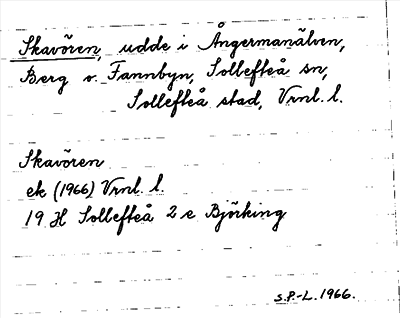 Skavören, udde i Ångermanälven,
Berg o. Fannbyn, Sollefteå sn,
Sollefteå stad, Vrnl. l.
Skavören
ek (1966) Vrnl. l.
19 H Sollefteå 2 e Björking
S.P.-L. 1966.